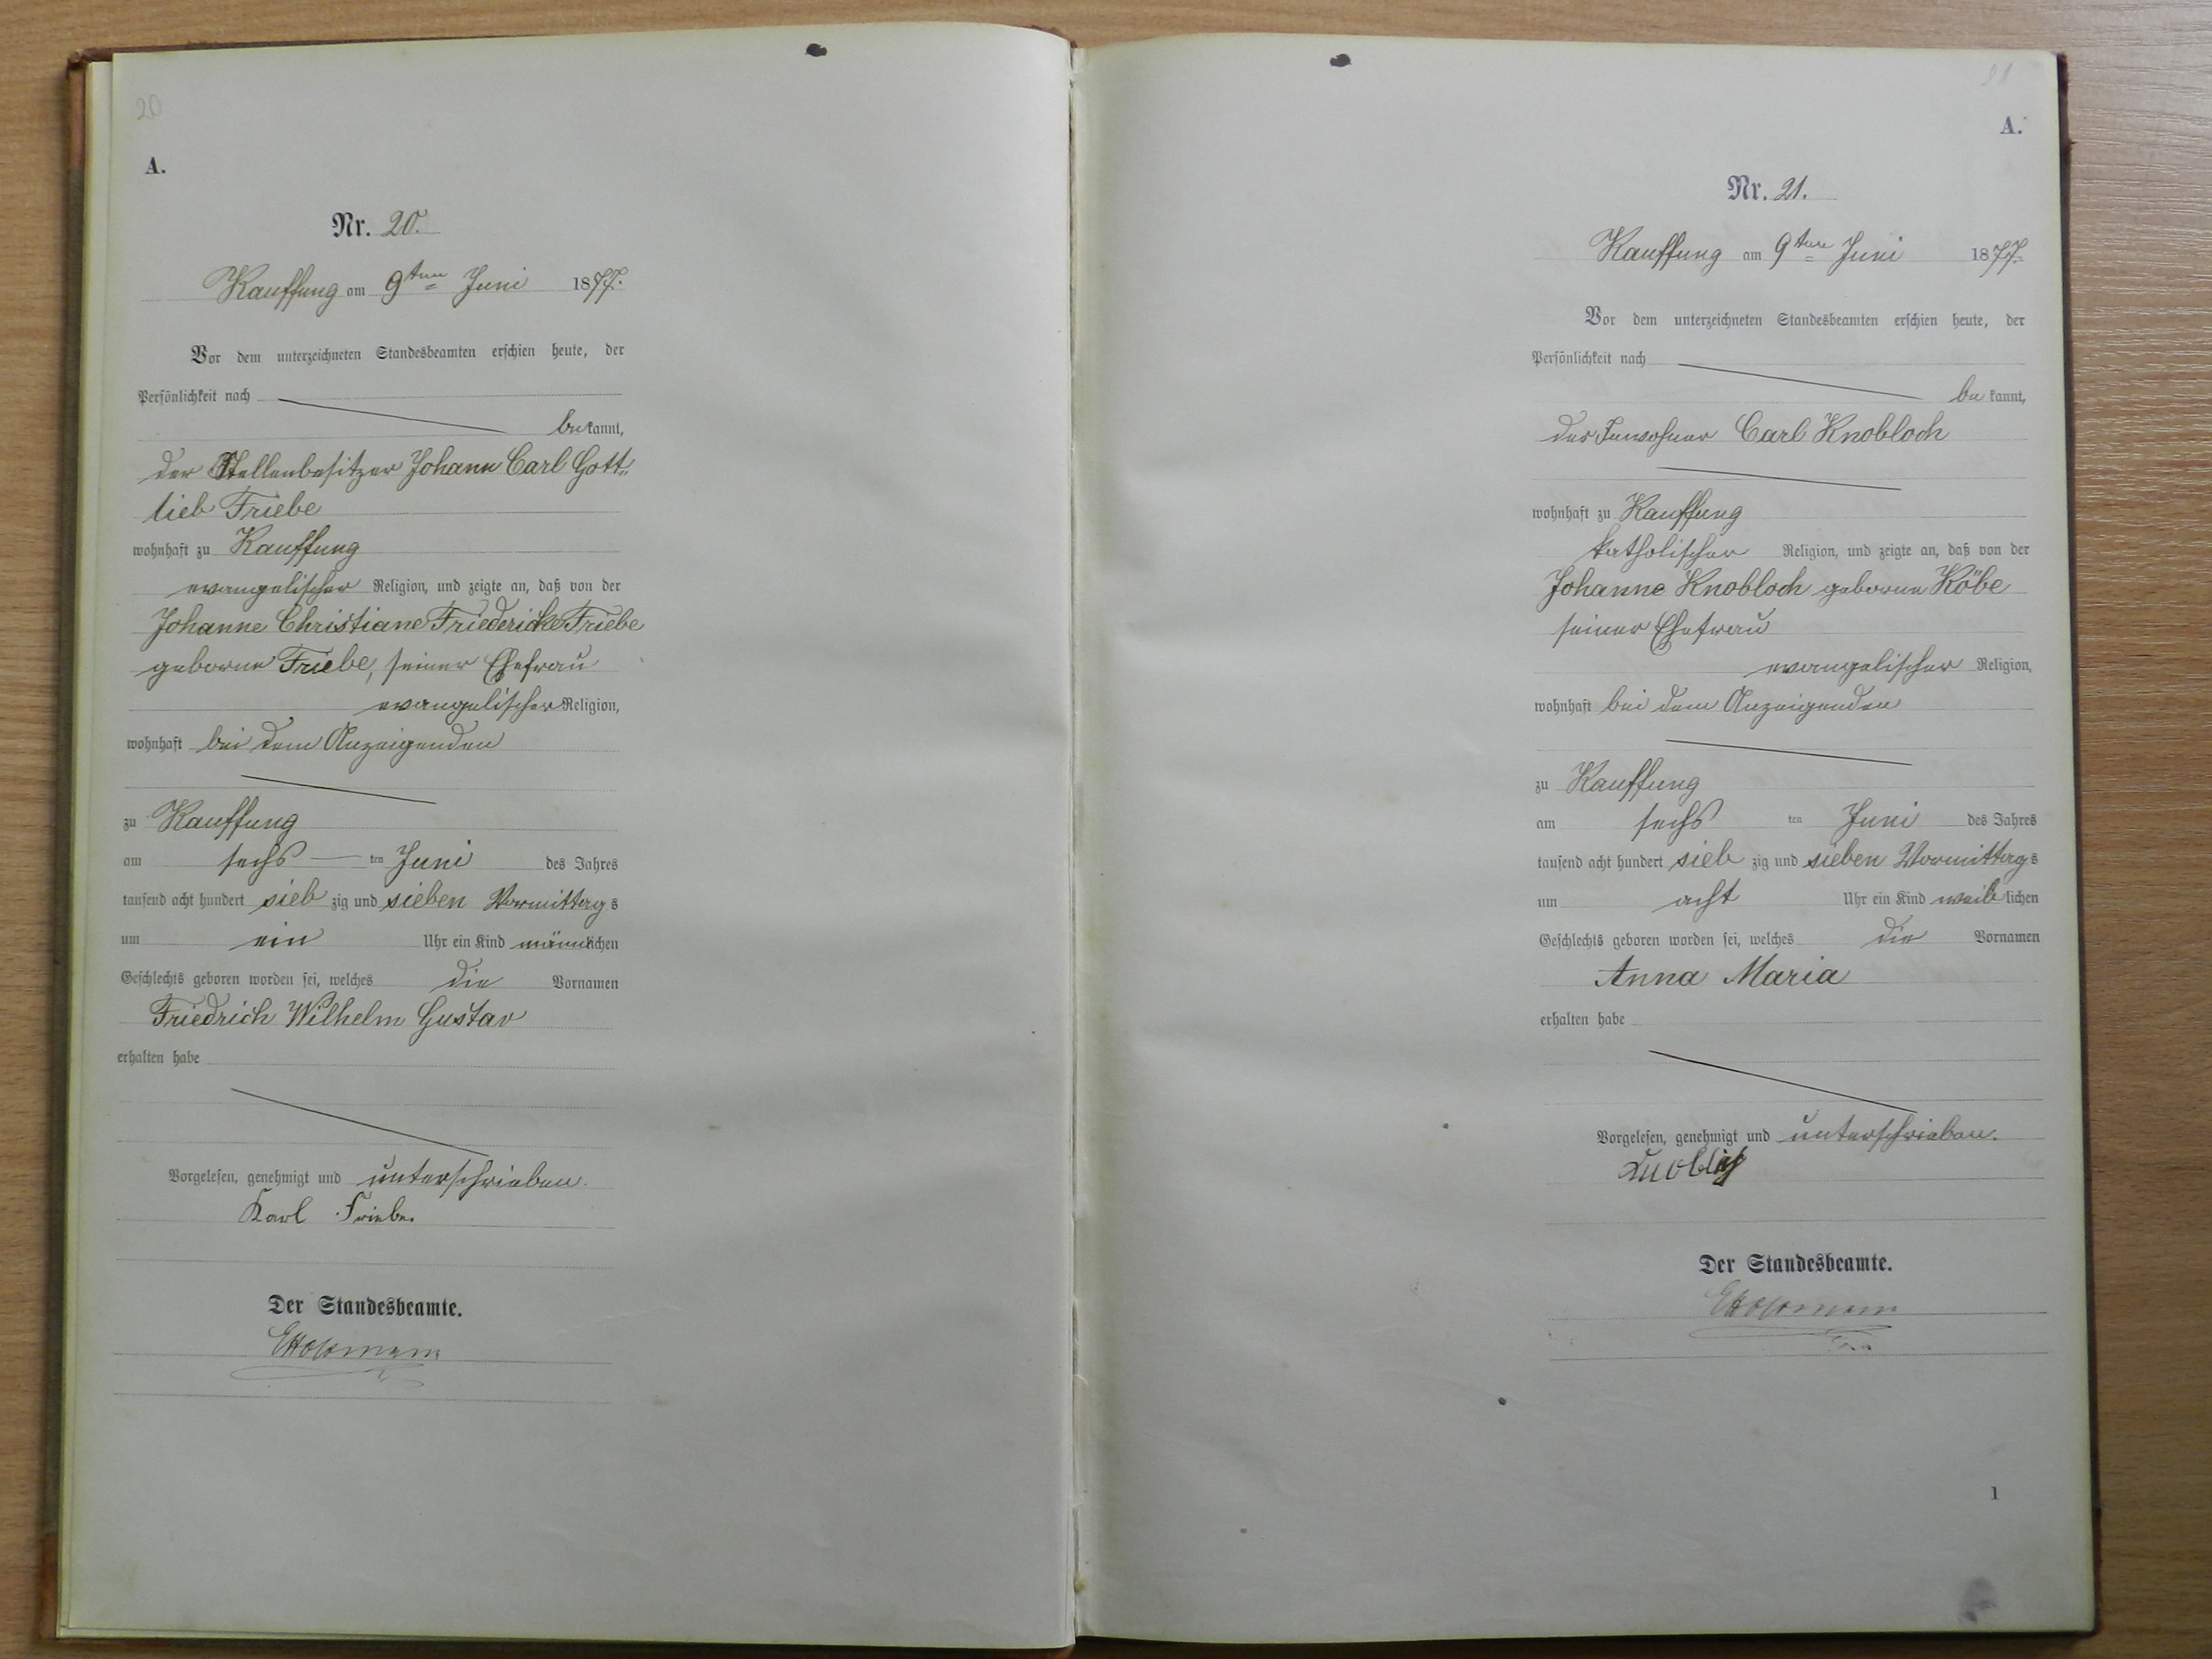 20
A.
Nr. 20.
Kauffung am 9ten Juni 1877.
Vor dem unterzeichneten Standesbeamten erschien heute, der
Persönlichkeit nach
bekannt,
der Stellenbesitzer Johann Carl Gott=
lieb Friebe
wohnhaft zu Kauffung
evangelischer Religion, und zeigte an, daß von der
Johanne Christiane Friedericke Friebe
geborne Friebe, seiner Ehefrau
evangelischer Religion,
wohnhaft bei dem Anzeigenden
zu Kauffung
am sechs ten Juni des Jahres
tausend acht hundert sieb zig und sieben Vormittags
um ein Uhr ein Kind männlichen
Geschlechts geboren worden sei, welches die Vornamen
Friedrich Wilhelm Gustav
erhalten habe
Vorgelesen, genehmigt und unterschrieben.
Karl Friebe.
Der Standesbeamte.
21
A.
Nr. 21.
Kauffung am 9ten Juni 1877.
Vor dem unterzeichneten Standesbeamten erschien heute, der
Persönlichkeit nach
bekannt,
der Inwohner Carl Knobloch
wohnhaft zu Kauffung
katholischer Religion, und zeigte an, daß von der
Johanne Knobloch geborne Köbe
seiner Ehefrau
evangelischer Religion,
wohnhaft bei dem Anzeigenden
zu Kauffung
am sechs ten Juni des Jahres
tausend acht hundert sieb zig und sieben Vormittags
um acht Uhr ein Kind weiblichen
Geschlechts geboren worden sei, welches die Vornamen
Anna Maria
erhalten habe
Vorgelesen, genehmigt und unterschrieben.
Der Standesbeamte.
1